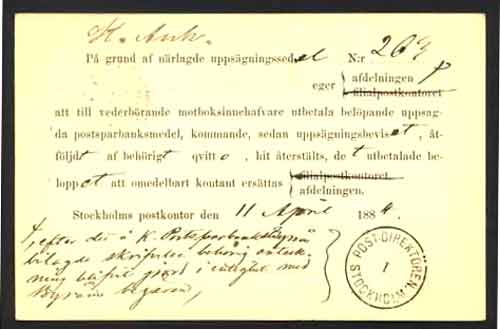 På grund af närlagde uppsägningssedel N:r 263
afdelningen
eger filialpostkontoret
att till vederbörande motboksinnehafvare utbetala belöpande uppsag-
da postsparbanksmedel, kommande, sedan uppsägningsbeviset, åt-
följdt af behörigt qvitto, hit återstälts, det utbetalade be-
loppet att omedelbart kontant ersättas filialpostkontoret.
afdelningen.
Stockholms postkontor den 11 April 1884.
efter det å K. Postsparbanksstyrelsen
bilagde skriftliga behörig anteck-
ning blifvit gjord i enlighet med
Byråns begäran,
POST-DIREKTÖREN
1
STOCKHOLM